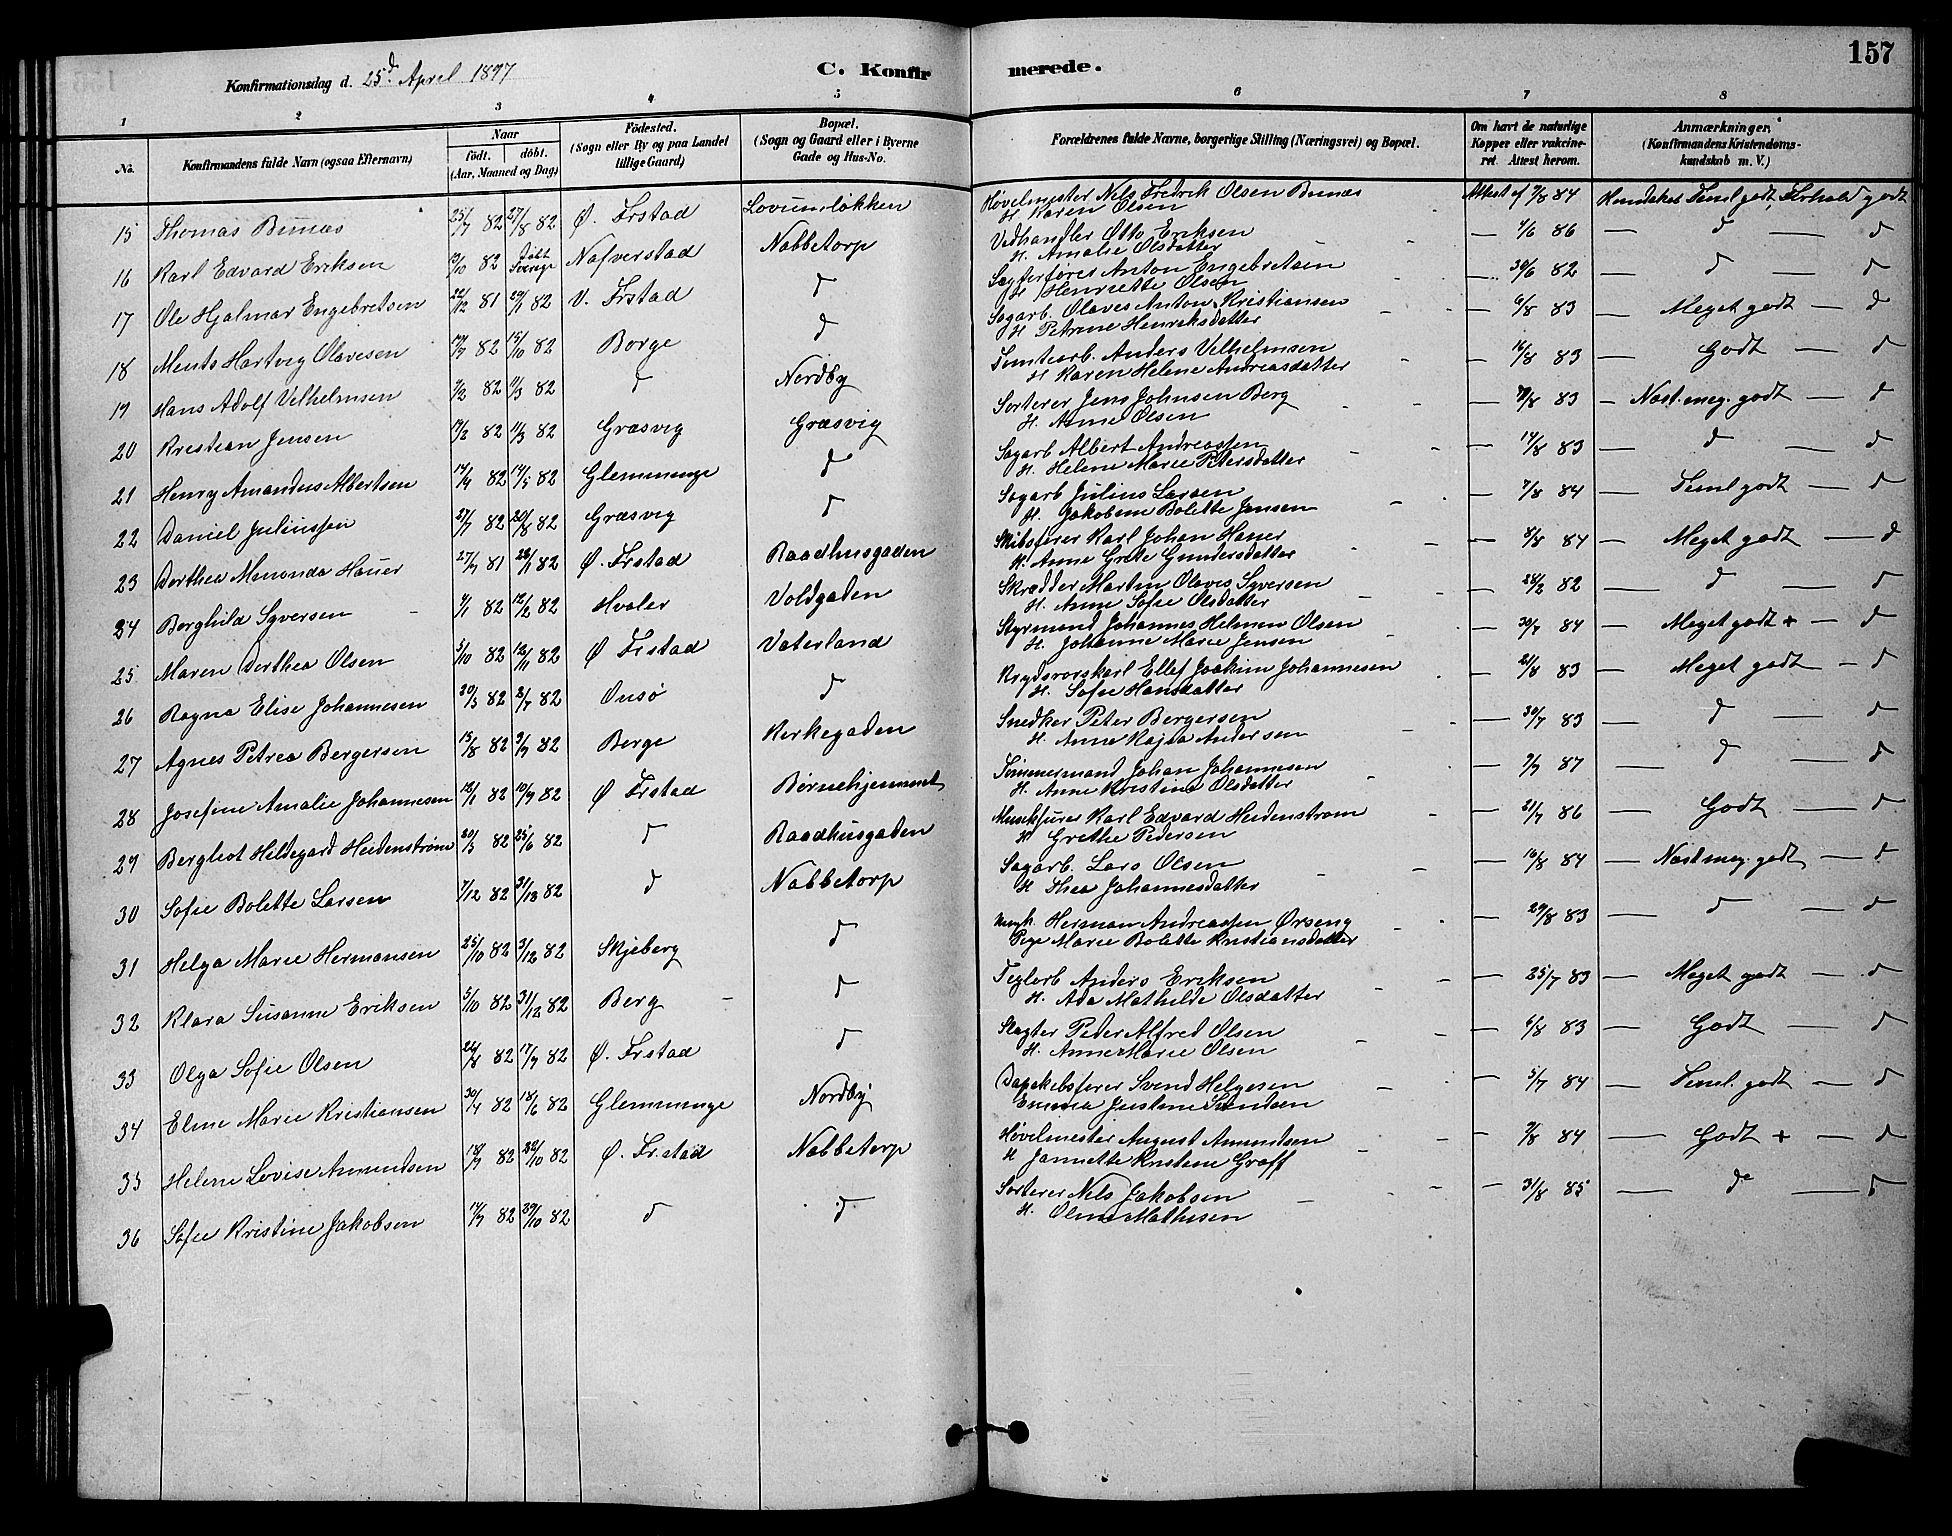 157
Konfirmationsdag d. 25d April 1897
C. Konfir merede.
1 2 3 4 5 6 7 8
No. Konfirmandens fulde Navn (ogsaa Efternavn) Naar født. døbt. (Aar, Maaned og Dag) Fødested. (Sogn eller By og paa Landet tillige Gaard) Bopæl. (Sogn og Gaard eller i Byerne Gade og Hus-No. Forældrenes fulde Navne, borgerlige Stilling (Næringsvei) og Bopæl. Om havt de naturlige Kopper eller vakcineret. Attest herom. Anmærkninger. (Konfirmandens Kristendomskundskab m. V.)
15 Thomas Bunæs 25/7 82 27/8 82 Ø. Frstad Lovumløkken Høvelmester Nels Fredrik Olsen Bunæs Attest af 7/8 84 Kundskab Teml godt, Forhold godt
H. Karen Olsen
16 Karl Edvard Eriksen 13/10 82 Døbt Sverige Nafverstad Nabbetorp Vedhandler Otto Eriksen — 4/6 86 — d — d
H. Amalie Olsdatter
17 Ole Hjalmar Engebretsen 22/12 81 29/1 82 V. Frstad d Sagferføres Anton Engebretsen — 30/6 82 — d — d
H Henriette Olsen
18 Ments Hartvig Olavesen 19/7 82 15/10 82 Borge d Sagarb. Olaves Anton Kristiansen — 6/8 83 — Meget godt — d
H Petrine Henriksdatter
19 Hans Adolf Velhelmsen 7/2 82 11/3 82 d Nordby Tomtearb. Anders Velhelmsen — 16/8 83 — Godt — d
H Karen Helene Andreasdatter
20 Kristian Jensen 19/2 82 11/3 82 Græsvig Græsvig Sorterer Jens Johnsen Berg — 7/8 83 — Næst. meg. godt — d
H. Anne Olsen
21 Henry Amandus Albertsen 14/4 82 14/5 82 Glemminge d Sagarb Albert Andreassen — 14/8 83 — d — d
H. Helene Marie Petersdatter
22 Daniel Juliussen 27/7 82 20/8 82 Græsvig d Sagarb Julius Larsen — 7/8 84 — Teml godt — d
H. Jakobine Bolette Jensen
23 Dorthea Menonda Hauer 27/9 81 28/1 82 Ø. Frstad Raadhusgaden Skibsfører Karl Johan Hauer — 8/8 84 — Meget godt — d
H. Anne Grete Gundersdatter
24 Borghild Syversen 4/1 82 12/2 82 Hvaler Voldgaden Skrædder Martin Olaves Syversen — 28/2 82 — d — d
H. Anne Sofie Olsdatter
25 Maren Dorthea Olsen 5/10 82 12/11 82 Ø Frstad Vaterland Styrmand Johannes Helmen Olsen — 30/7 84 — Meget godt + — d
H. Johanne Marie Jensen
26 Ragna Elise Johannesen 20/3 82 2/7 82 Onsø d Krydsvorskarl Ellef Joakim Johannesen — 21/8 83 — Meget godt — d
H. Sofie Hansdatter
27 Agnes Petrea Bergersen 15/8 82 3/9 82 Borge Kirkegaden Snedker Peter Bergersen — 30/7 83 — d — d
H. Anne Kajsa Andersen
28 Josefine Amalie Johannesen 12/1 82 10/9 82 Ø Frstad Børnehjemmet Tømmermand Johan Johannesen — 7/9 87 — d — d
H. Anne Kristine Olsdatter
29 Bergliot Hildegard Heidenstrøm 20/3 82 25/6 82 d Raadhusgaden Karl Edvard Heidenstrøm — 21/7 86 — Godt — d
H Grethe Pedersen
30 Sofie Bolette Larsen 7/12 82 31/12 82 d Nabbetorp Sagarb. Lars Olsen — 16/8 84 — Næst meg. godt — d
H Thea Johannesdatter
31 Helga Marie Hermansen 25/10 82 3/12 82 Skjeberg d Ungk. Herman Andreassen Ørseng — 29/8 83 — d — d
Pige Marie Bolette Kristiansdatter
32 Klara Susanne Eriksen 5/10 82 31/12 82 Berg d Teglarb Anders Eriksen — 25/7 83 — Meget godt — d
H. Ada Mathilde Olsdatter
33 Olga Sofie Olsen 26/8 82 17/9 82 Ø. Frstad d Slagter Peder Alfred Olsen — 6/8 83 — Godt — d
H. Anne Marie Olsen
34 Elme Marie Kristiansen 30/4 82 18/6 82 Glemminge Nordby Dampskibsfører Svend Helgesen — 5/7 84 — Teml. godt — d
Emma Justine Svendsen
35 Helene Lovise Amundsen 18/9 82 22/10 82 Ø. Frstad Nabbetorp Høvelmester August Amundsen — 9/8 84 — Godt + — d
H Jannette Kristene Graff
36 Sofie Kristine Jakobsen 17/9 82 29/10 82 d d Sorterer Nels Jakobsen — 31/8 85 — do — d
H. Oline Mathisen